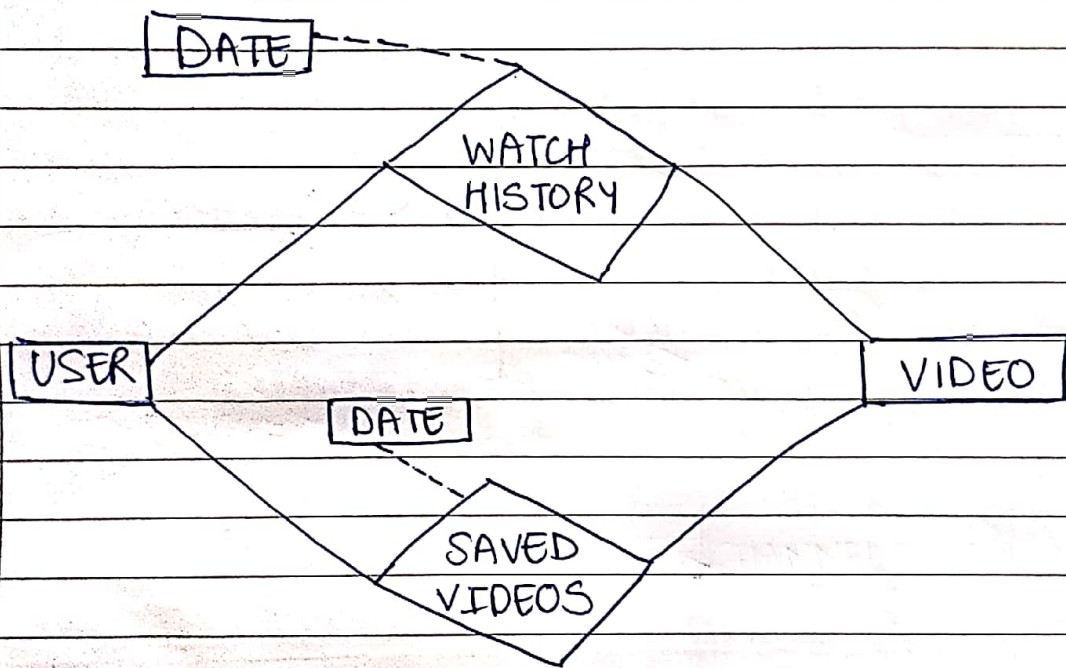 DATE
WATCH
HISTORY
USER
VIDEO
DATE
SAVED
VIDEOS